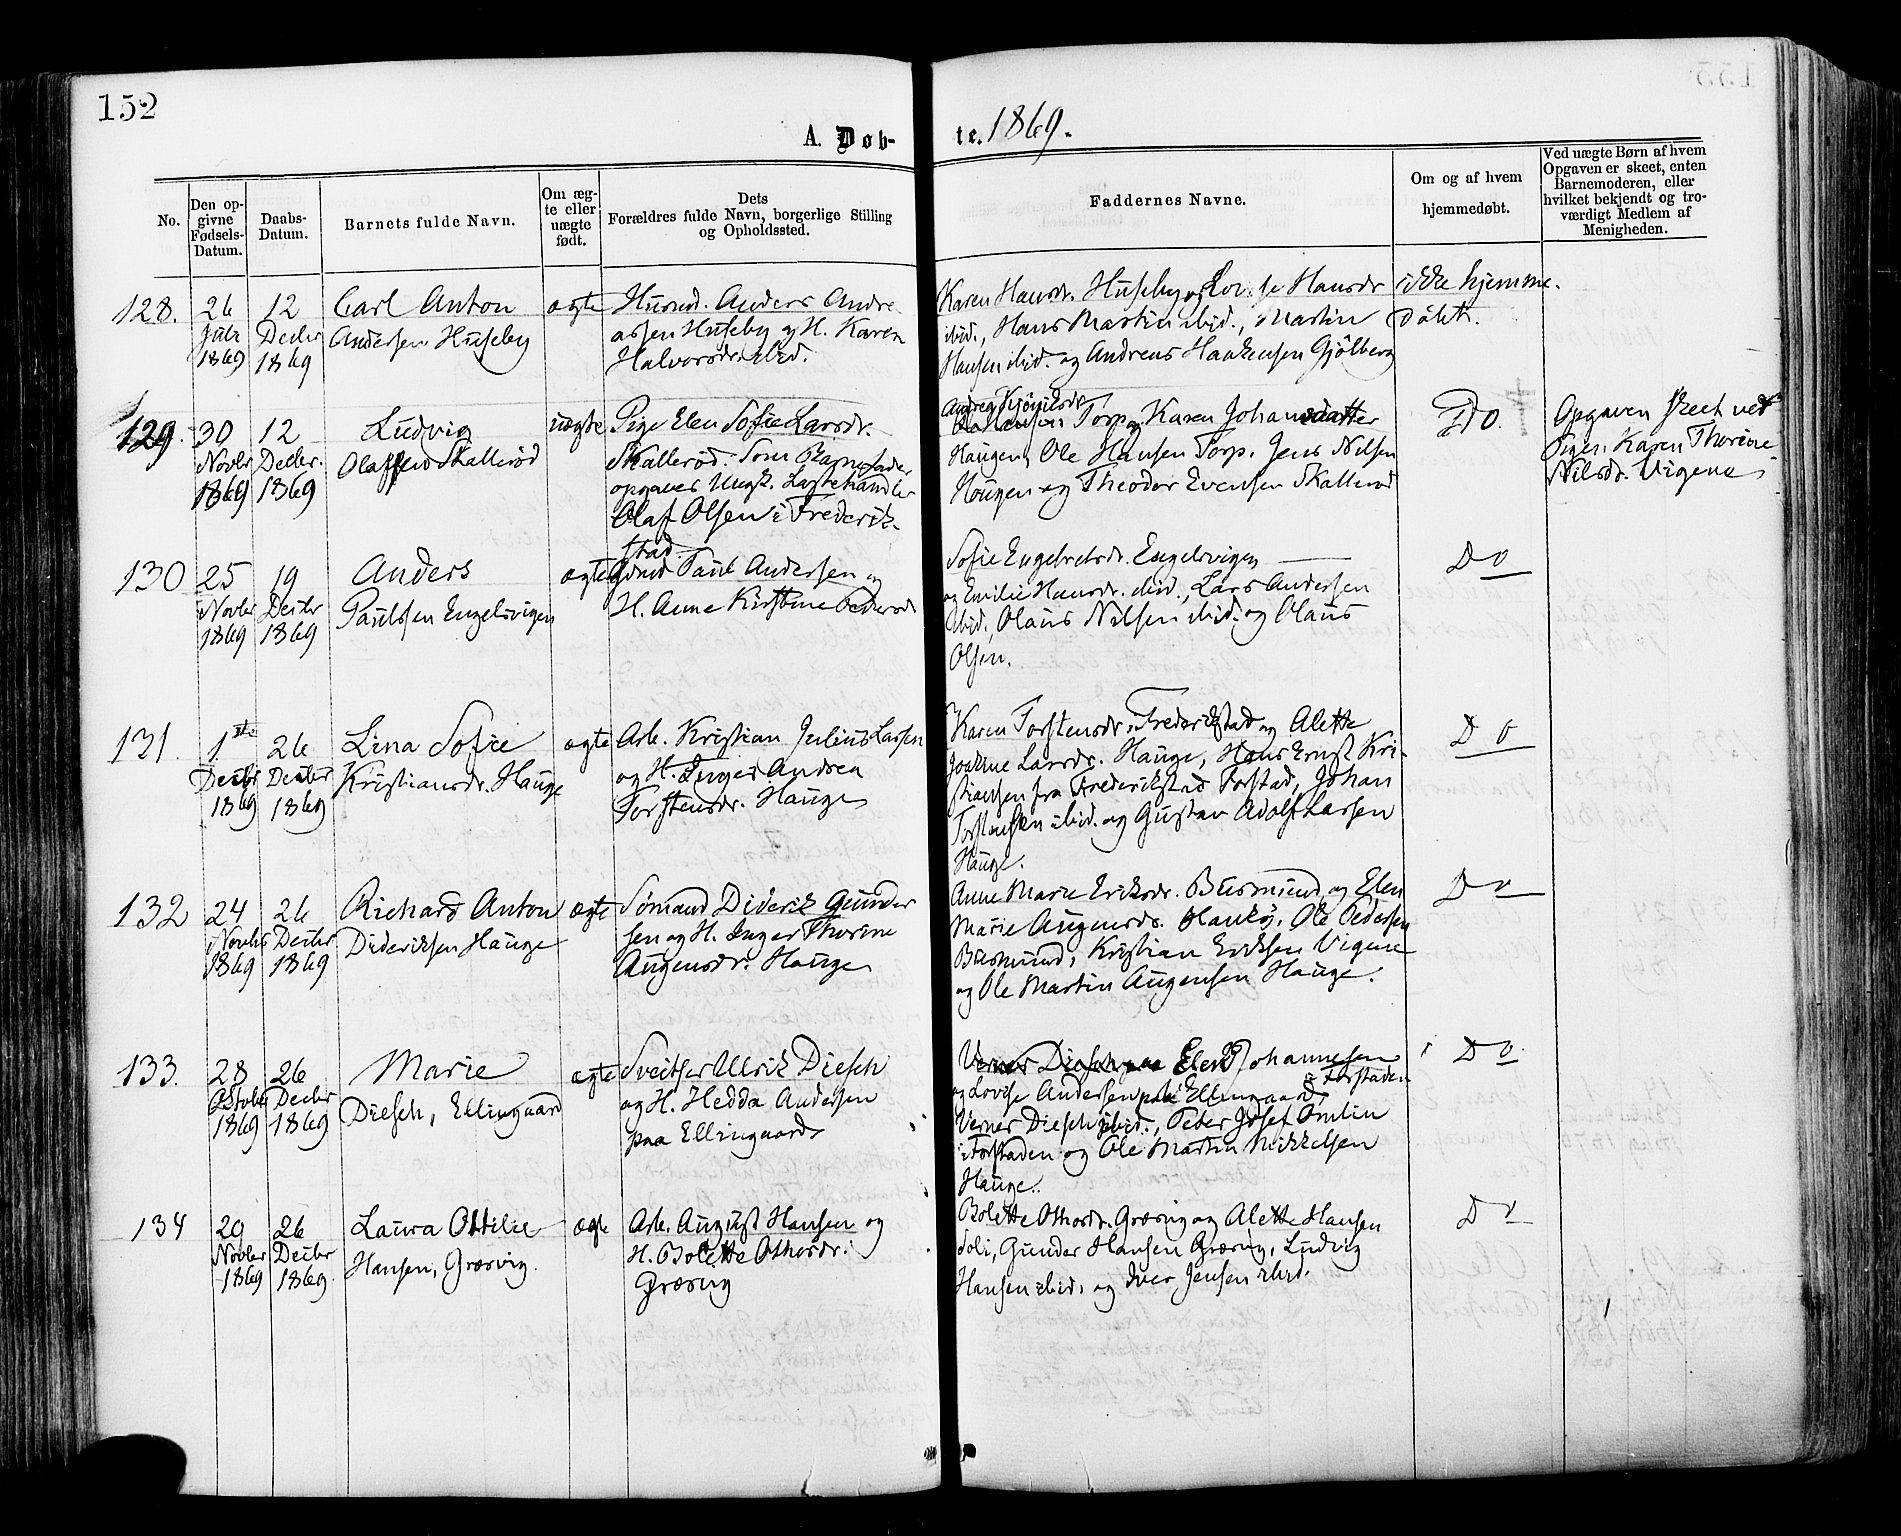 152
A. Døb- te. 1869.
No.
Den op-
givne
Fødsels-
Datum.
Daabs-
Datum.
Barnets fulde Navn.
Om æg-
te eller
uægte
født.
Dets
Forældres fulde Navn, borgerlige Stilling
og Opholdssted.
Faddernes Navne.
Om og af hvem
hjemmedøbt.
Ved uægte Børn af hvem
Opgaven er skeet, enten
Barnemoderen, eller
hvilket bekjendt og tro-
værdigt Medlem af
Menigheden.
128.
26
1869
12
Decbr
1869
Carl Anton
Andersen Huseby
ægte
Husmd. Anders Andre
assen Huseby og H. Karen
Halvorsdr. ibid.
Karen Hansdr. Huseby og Lovise Hansdr
ibid., Hans Martin ibid., Martin
Hansen ibid. og Andreas Haakensen Gjölberg
ikke hjemme-
döbt.
129.
30
Novbr
1869
12
Decbr.
1869
Ludvig
Olafsen Skallerød
uægte
Pige Elen Sofie Larsdr.
Skallerød. Som Barnefader
opgaves Ungk. Lystehandler
Olaf Olsen i Frederik-
stad.
Torp og Karen Johansdatter
Haugen, Ole Hansen Torp, Jens Nilsen
Haugen og Theodor Evensen Skallerød
Do.
Opgaven skeet ved
Pigen Karen Thorine
Nilsdr. Vigene
130
25
Novbr
1869
19
Decbr
1869
Anders
Paulsen Engelsvigen
ægte
Paul Andersen og
H. Anne Kirstine Pedersdr
Sofie Engebretsdr. Engelsvigen
og Emilie Hansdr. ibid., Lars Andersen
ibid., Olaus Nilsen ibid. og Olaus
Olsen.
Do
131.
1ste
Decbr
1869
26
Decbr
1869
Lina Sofie
Kristiansdr. Hauge
ægte
Arb. Kristian Julius Larsen
og H. Inger Andrea
Torstensdr. Hauge
Karen Torstensdr. Frederikstad og Alette
Joakine Larsdr. Hauge, Hans Ernst Kri-
stiansen fra Frederikstad Forstad, Johan
Torstensen ibid. og Gustav Adolf Larsen
Hauge.
Do
132
24
Novbr
1869
26
Decbr
1869
Richard Anton
Dideriksen Hauge
ægte
Sömand Diderik Gunder
sen og H. Inger Thorine
Augensdr. Hauge
Anne Marie Eriksdr. Busmund og Elen
Marie Augensdr. Hankö, Ole Pedersen
Busmund, Kristian Eriksen Vigene
og Ole Martin Augensen Hauge.
Do
133.
28
Oktobr
1869
26
Decbr
1869
Marie
Diesch, Ellingaard
ægte
Sveitser Ulrik Diesch
og H. Hedda Andersen
paa Ellingaard
Johannesen
i Forstaden
og Lovise Andersen paa Ellingaard,
Verner Diesch ibid., Peter Josef Omlin
i Forstaden og Ole Martin Mikkelsen
Hauge.
Do
134
29
Novbr
1869
26
Decbr
1869.
Laura Ottilie
Hansen, Græsvig.
ægte
Arb. August Hansen og
H. Bolette Othorsdr.
Græsvig
Bolette Othorsdr. Græsvig og Alette Hansen
Gunder Hansen Græsvig, Ludvig
Hansen ibid. og Iver Jensen ibid.
Do